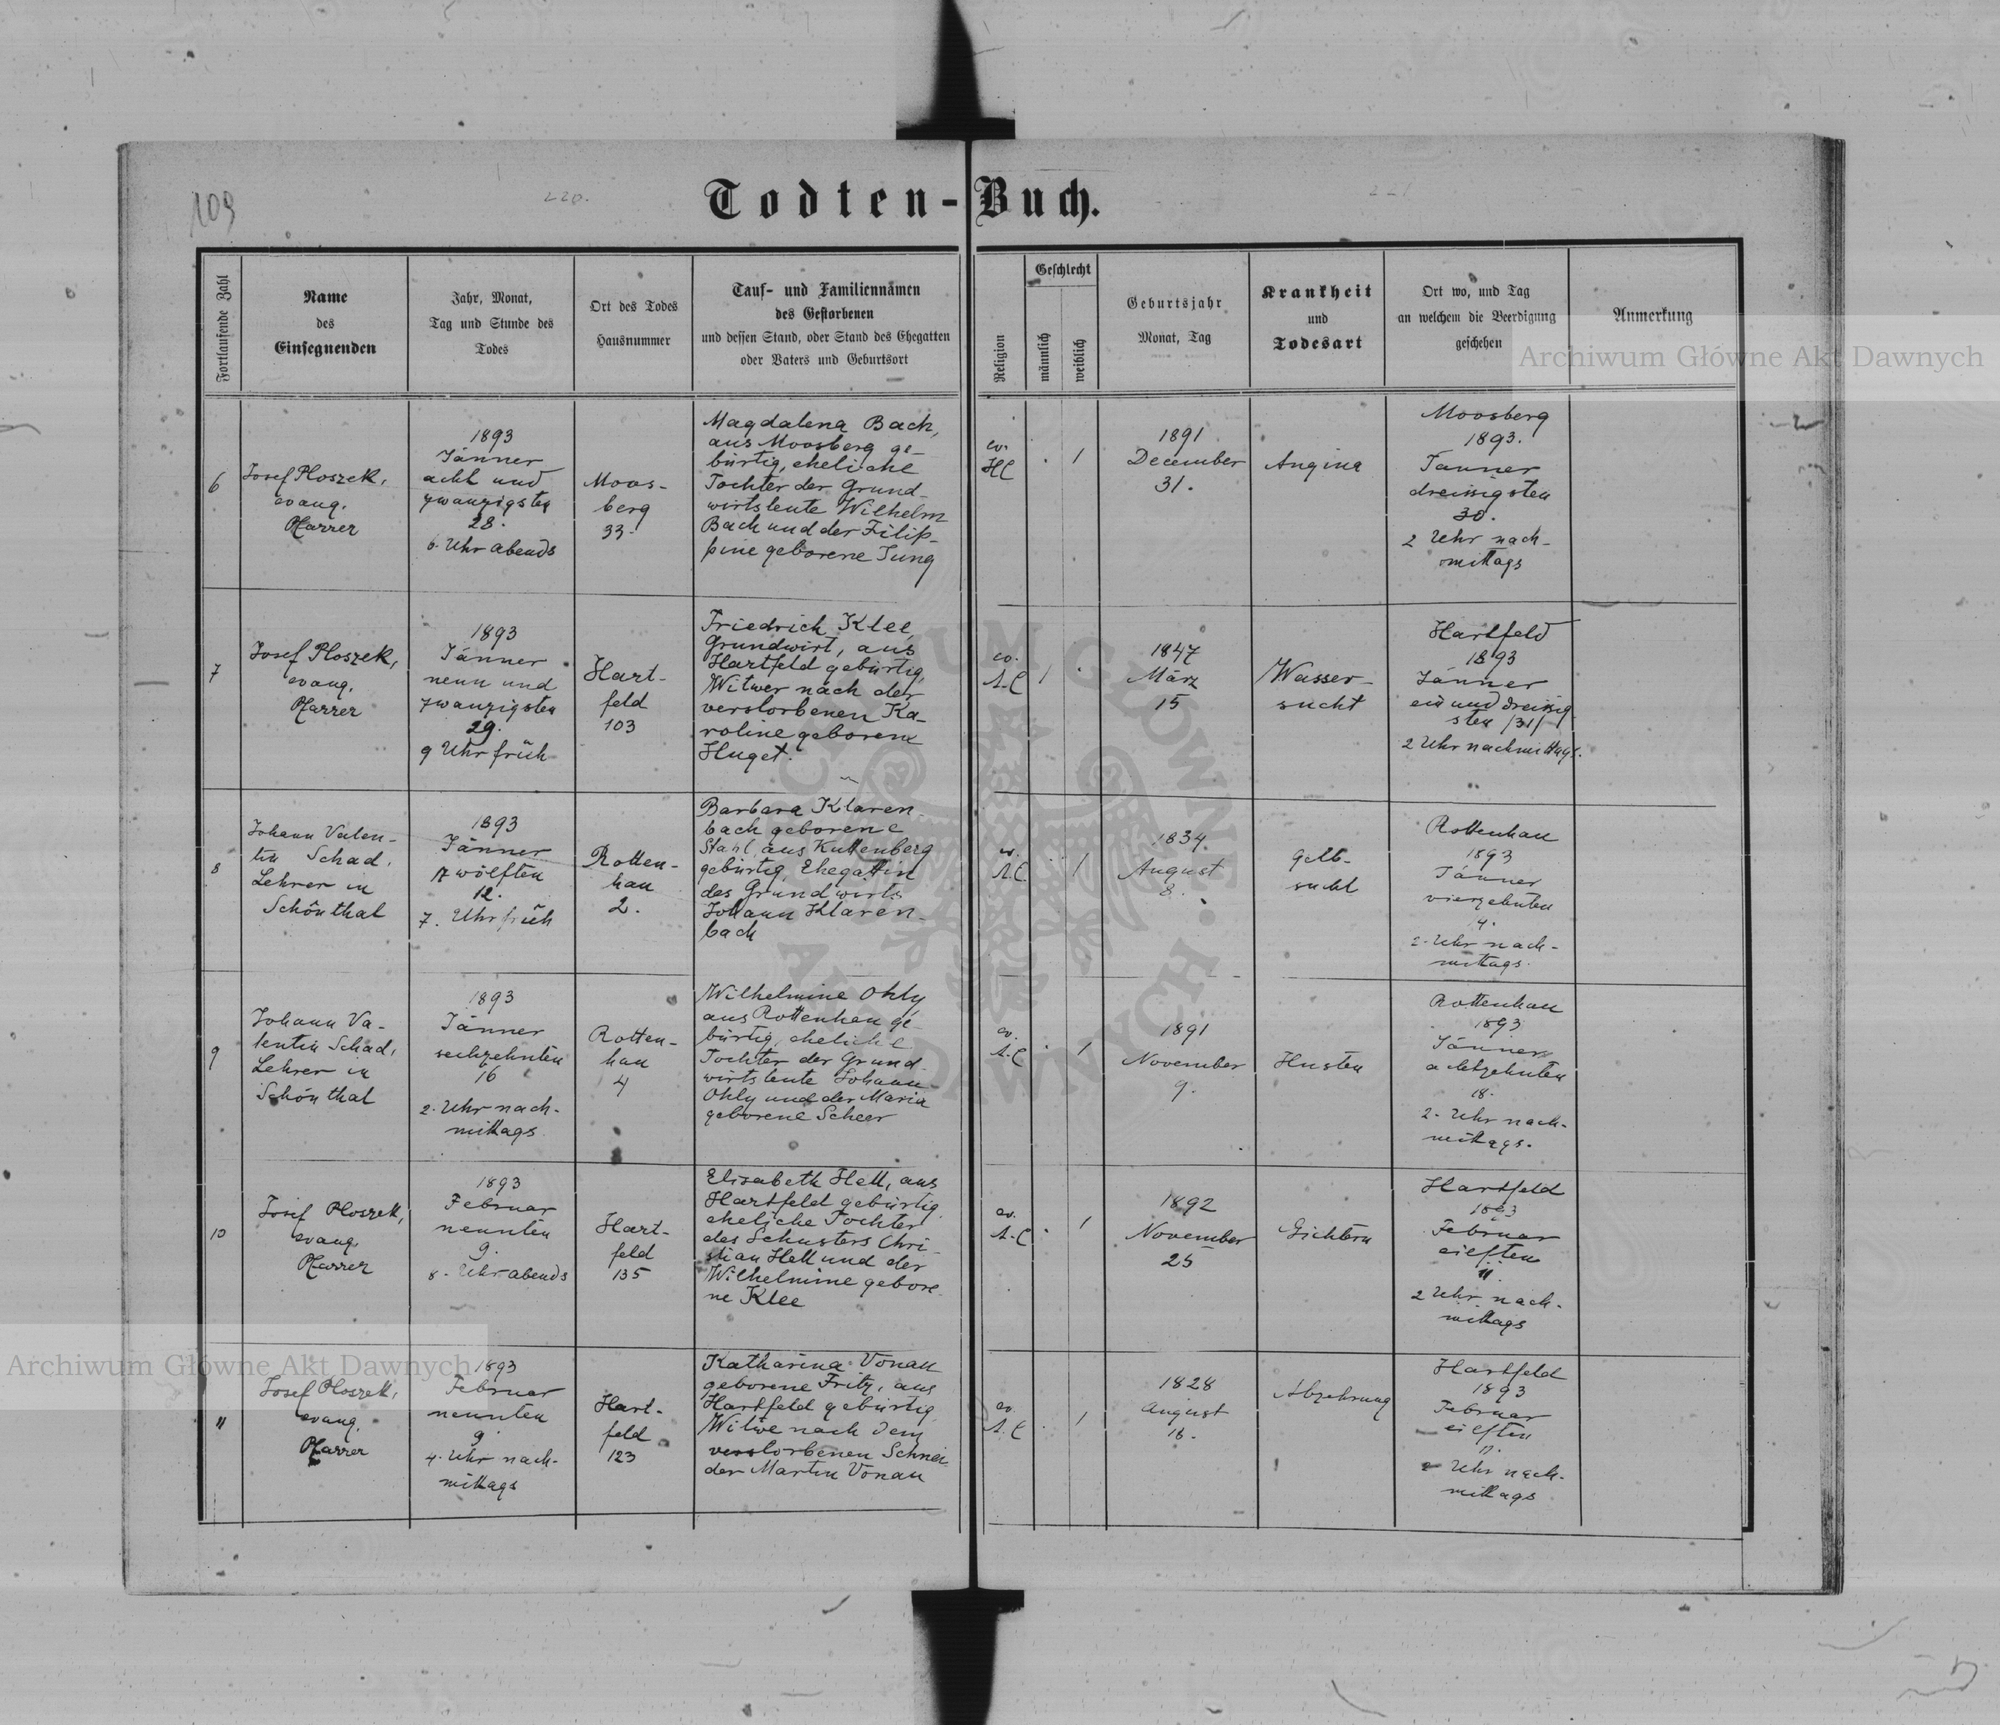 109
220.
221
Todten-Buch.
Fortlaufende Zahl
Name
des
Einsegnenden
Jahr, Monat,
Tag und Stunde des
Todes
Ort des Todes
Hausnummer
Tauf- und Familiennamen
des Gestorbenen
und dessen Stand, oder Stand des Ehegatten
oder Vaters und Geburtsort
Religion
Geschlecht
männlich
weiblich
Geburtsjahr
Monat, Tag
Krankheit
und
Todesart
Ort wo, und Tag
an welchem die Beerdigung
geschehen
Anmerkung
Archiwum Główne Akt Dawnych
6
Josef Ploszek,
evang.
Pfarrer
1893
Jänner
acht und
zwanzigsten
28.
6. Uhr abends
Moos-
berg
33.
Magdalena Bach,
aus Moosberg ge-
bürtig, eheliche
Tochter der Grund-
wirtsleute Wilhelm
Bach und der Filip-
pine geborene Jung
ev.
HC
. 1
1891
December
31.
Angina
Moosberg
1893.
Janner
dreissigsten
30.
2 Uhr nach-
mittags
7
Josef Ploszek,
evang.
Pfarrer
1893
Jänner
neun und
zwanzigsten
29.
9 Uhr früh
Hart-
feld
103
Friedrich Klee,
Grundwirt, aus
Hartfeld gebürtig,
Witwer nach der
verstorbenen Ka-
roline geborene
Huget.
ev.
A.C
1 .
1847
März
15
Wasser-
sucht
Hartfeld
1893
Jänner
ein und dreissig
sten /31/
2 Uhr nachmittags.
8
Johann Valen-
tin Schad,
Lehrer in
Schönthal
1893
Jänner
zwölften
12.
7. Uhr früh
Rotten-
han
2.
Barbara Klaren-
bach geborene
Stahl, aus Kuttenberg
gebürtig, Ehegattin
des Grundwirts
Johann Klaren-
bach
ev.
A.C.
. 1
1834.
August
8.
Gelb-
sucht
Rottenhan
1893
Jänner
vierzehnten
4.
2. Uhr nach-
mittags.
9
Johann Va-
lentin Schad,
Lehrer in
Schönthal
1893
Jänner
sechzehnten
16
2. Uhr nach-
mittags
Rotten-
han
4
Wilhelmine Ohly
aus Rottenhan ge-
bürtig, eheliche
Tochter der Grund-
wirtsleute Johann
Ohly und der Maria
geborene Scheer
ev.
A.C
. 1
1891
November
9.
Husten
Rottenhan
1893
Jänner
achtzehnten
18.
2. Uhr nach-
mittags.
10
Josef Ploszek,
evang.
Pfarrer
1893
Februar
neunten
9.
8. Uhr abends
Hart-
feld
135
Elisabeth Hell, aus
Hartfeld gebürtig,
eheliche Tochter
des Schusters Chri-
stian Hell und der
Wilhelmine gebore-
ne Klee
ev.
A.C
. 1
1892
November
25
Gichtern
Hartfeld
1893
Februar
eilften
11.
2 Uhr nach-
mittags
11
Josef Ploszek,
evang.
Pfarrer
1893
Februar
neunten
9.
4. Uhr nach-
mittags
Hart-
feld
123
Katharina Vonau
geborene Fritz, aus
Hartfeld gebürtig
Witwe nach dem
verstorbenen Schnei-
der Martin Vonau
ev.
A.C
. 1
1828
August
18.
Abzehrung
Hartfeld
1893
Februar
eilften
11.
2 Uhr nach-
mittags
Archiwum Główne Akt Dawnych